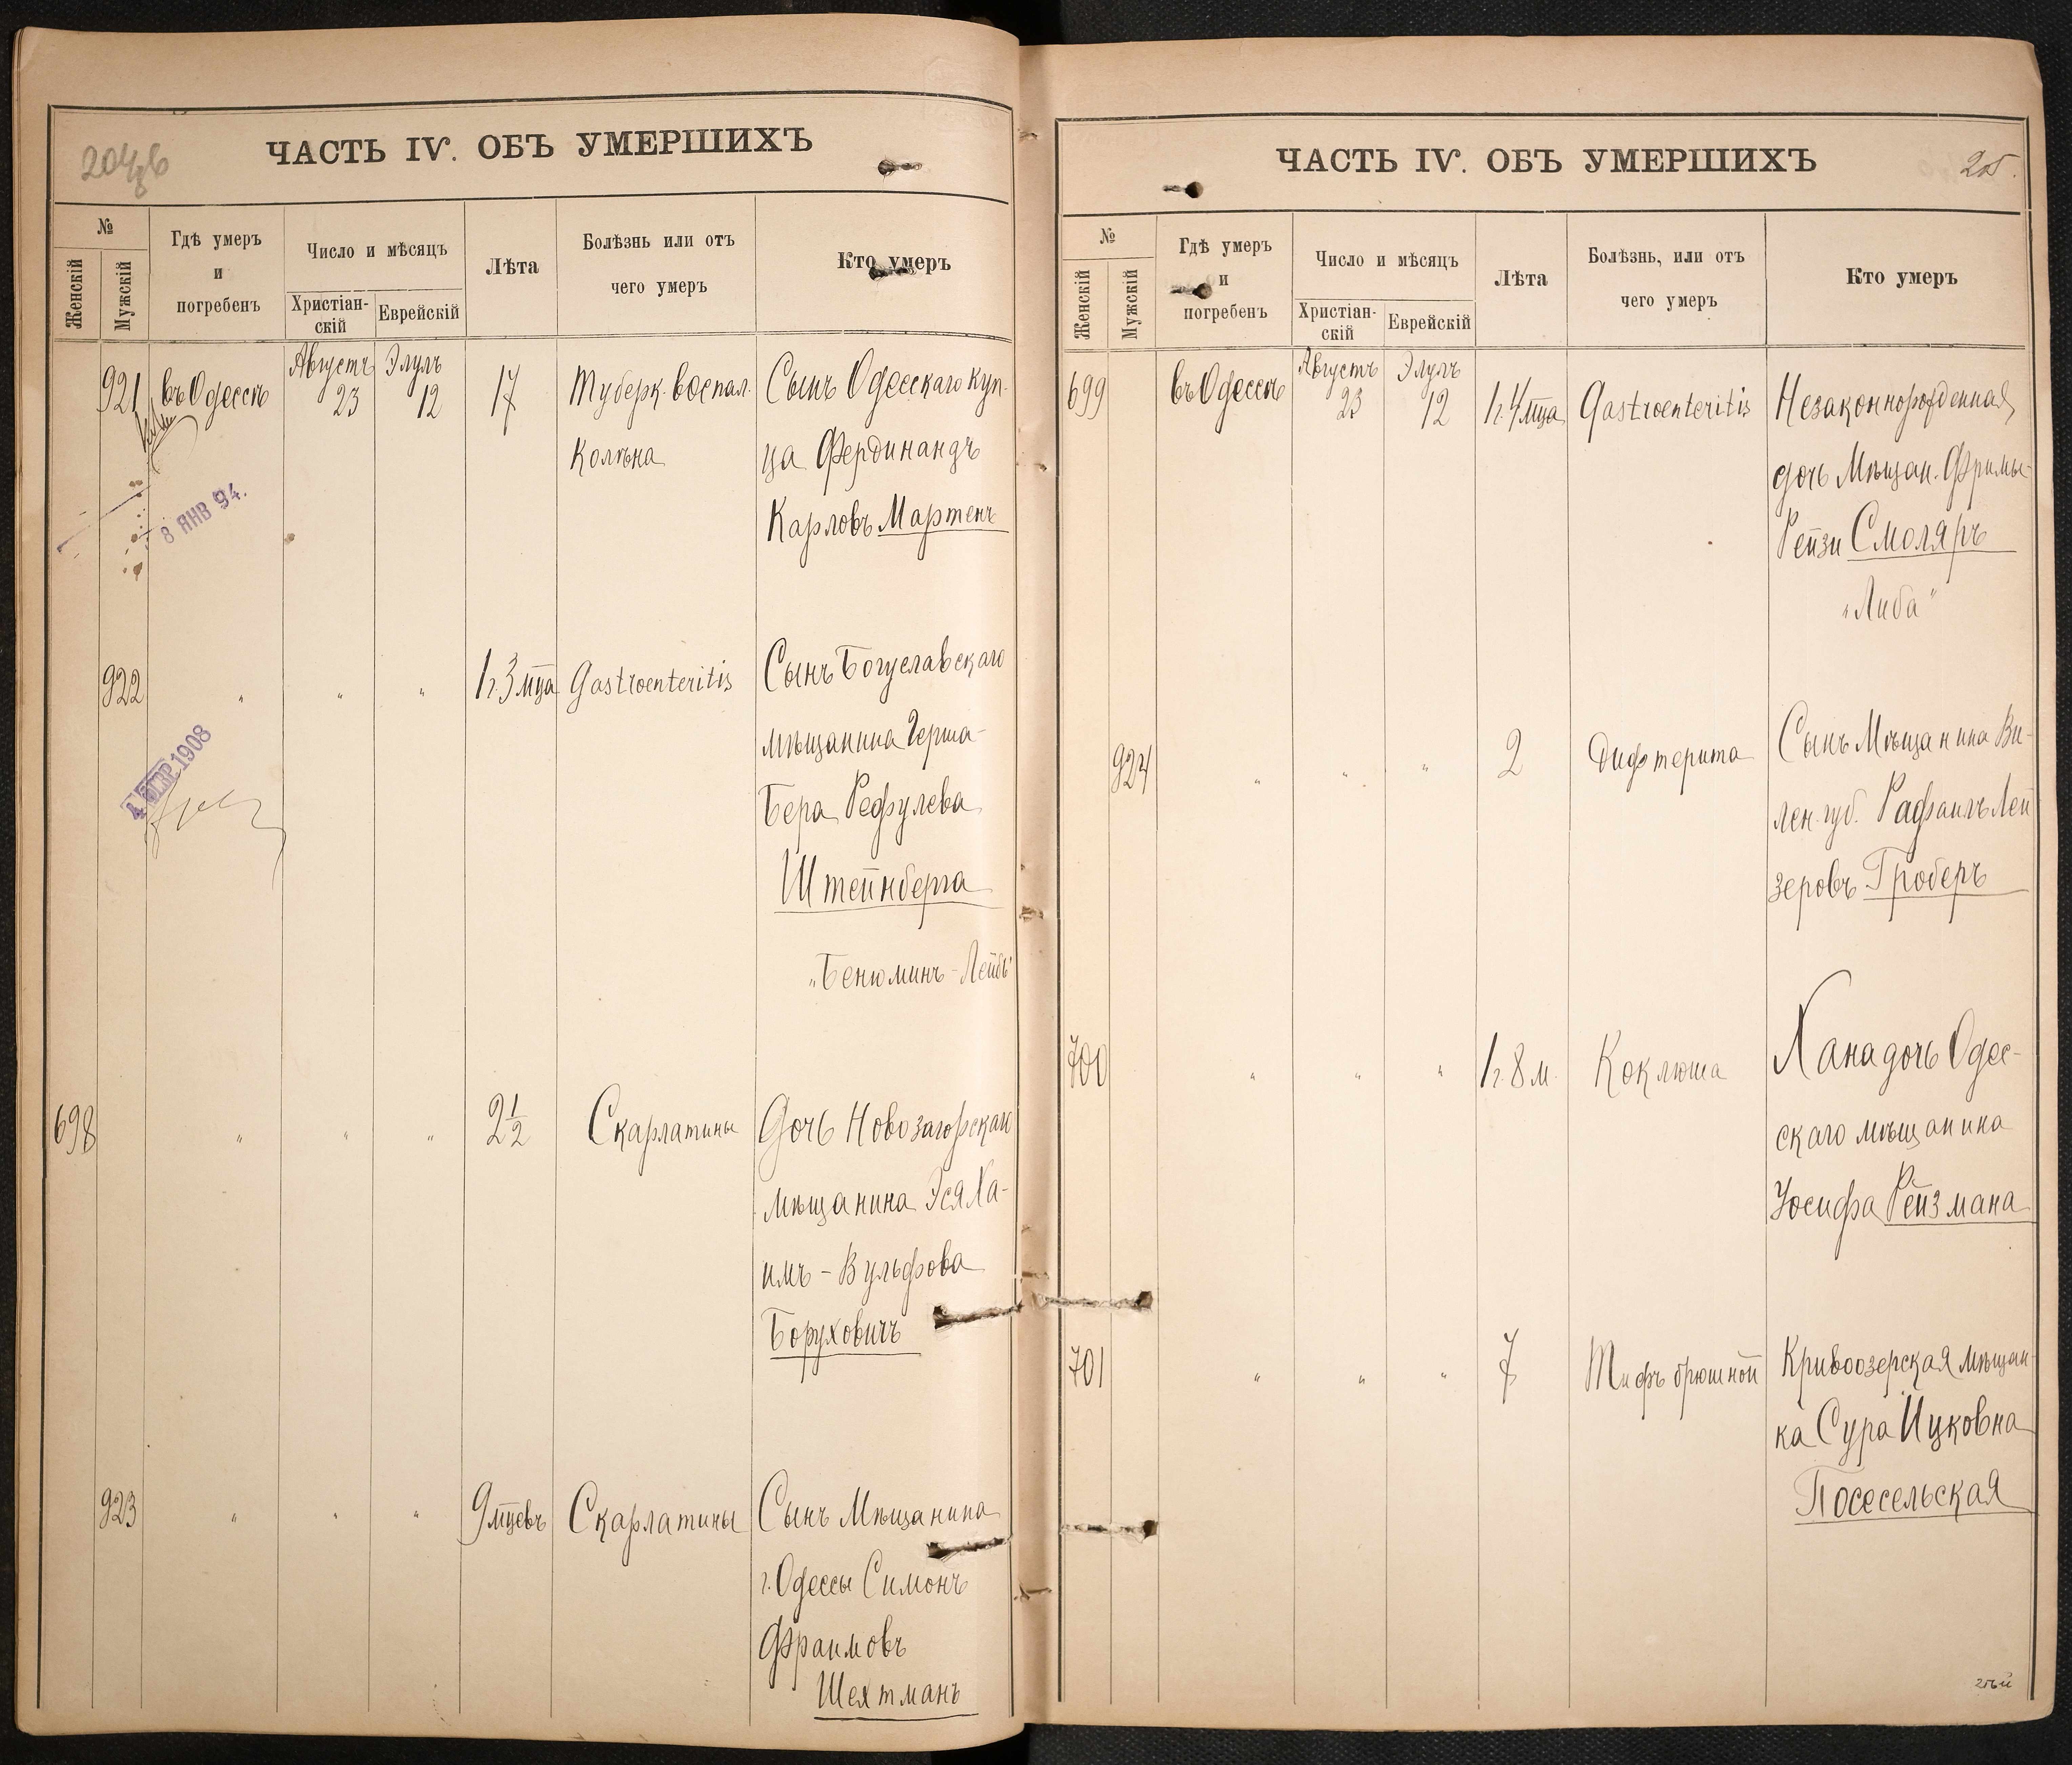 ЧАСТЬ IV. ОБЪ УМЕРШИХЪ
№
Женскій
Мужскій
Гдѣ умеръ
и
погребенъ
Число и мѣсяцъ
Христіан-
скій
Еврейскій
Лѣта
Болѣзнь или отъ
чего умеръ
Кто умеръ
921 въ Одессѣ Августъ 23 Элулъ 12 17 Туберк. воспал. Сынъ Одесскаго куп-
колѣна ца Фердинандъ
Карловъ Мартенъ
8 ЯНВ 94.
922 " " " 1 г. 3 мца Gastroenteritis Сынъ Богуславскаго
мѣщанина Герша-
Бера Рефулева
Штейнберга
„Бенюминъ-Лейбъ"
4 ФЕВР 1908
698 " " " 2 1/2 Скарлатины Дочь Новозагорскаго
мѣщанина Эся Ха-
имъ-Вульфова
Боруховичъ
923 " " " 9 мцевъ Скарлатины Сынъ Мѣщанина
г. Одессы Симонъ
Фраимовъ
Шехтманъ
ЧАСТЬ IV. ОБЪ УМЕРШИХЪ
№
Женскій
Мужскій
Гдѣ умеръ
и
погребенъ
Число и мѣсяцъ
Христіан-
скій
Еврейскій
Лѣта
Болѣзнь, или отъ
чего умеръ
Кто умеръ
699 въ Одессѣ Августъ 23 Элулъ 12 1 г. 4 мца Gastroenteritis Незаконнорожденная
дочь Мѣщан. Фримы-
Рейзи Смоляръ
„Либа"
924 " " " 2 Дифтерита Сынъ Мѣщанина Ви-
лен. губ. Рафаилъ Лей
зеровъ Гроберъ
700 " " " 1 г. 8 м. Коклюша Хана дочь Одес-
скаго мѣщанина
Іосифа Рейзмана
701 " " " 7 Тифъ брюшной Кривоозерская мѣщан-
ка Сура Ицковна
Посесельская